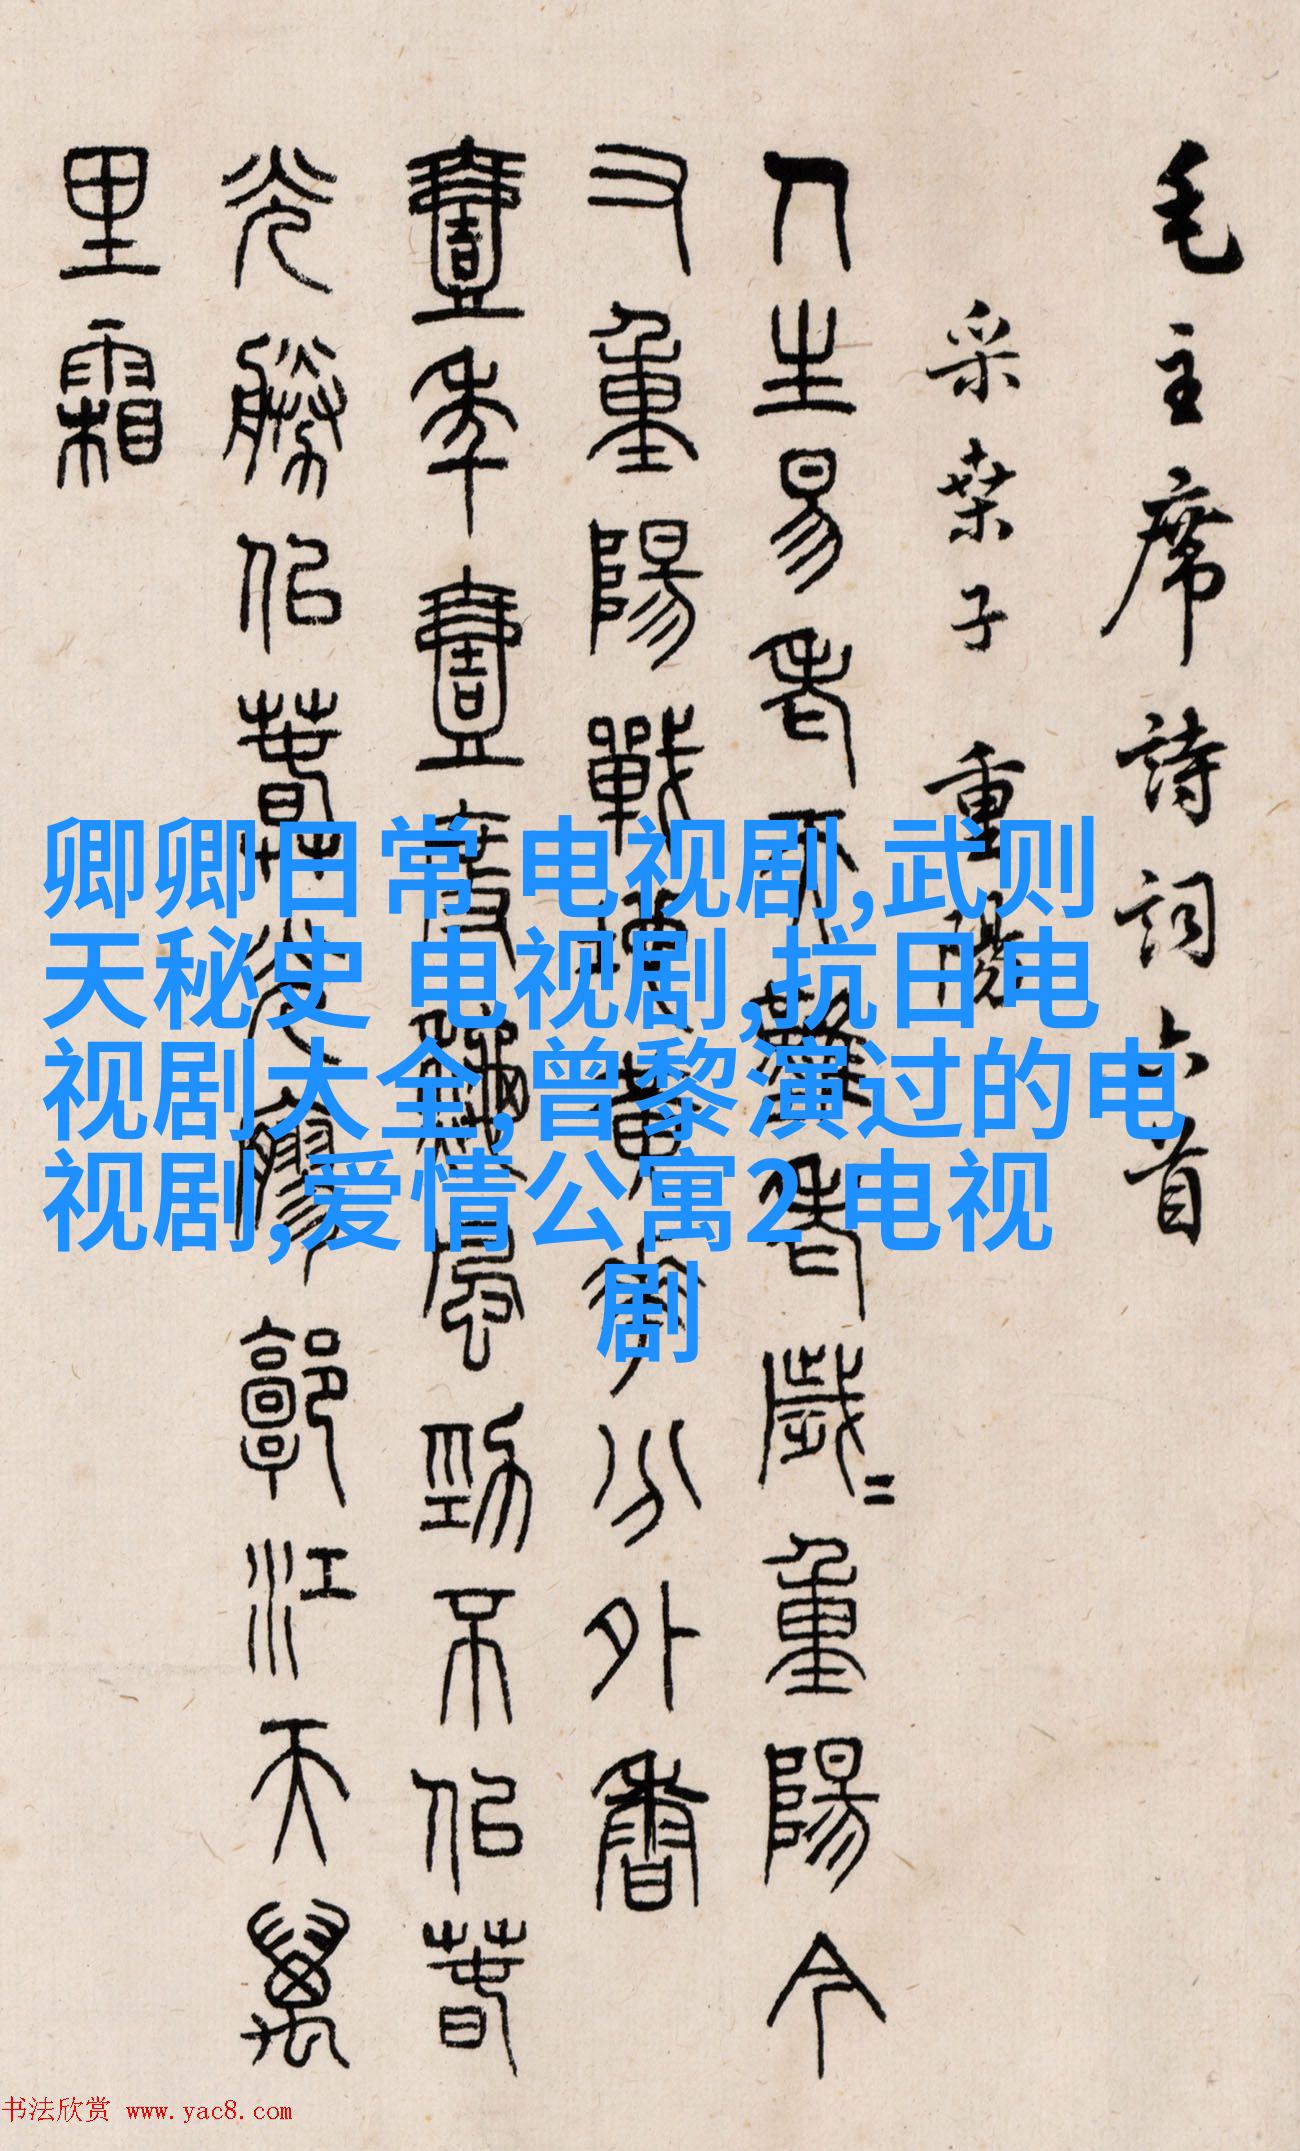 毛主席詩詞六首
采桒子 重陽
人生易老天難老歲〻重陽今
又重陽戰地黃華分外香
壹年壹度龝風勁不佀春
光勝佀春光寥郭江天萬
里霜
卿卿日常 电视剧,武则
天秘史 电视剧,抗日电
视剧大全,曾黎演过的电
视剧,爱情公寓2 电视
剧
书法欣赏 www.yac8.com